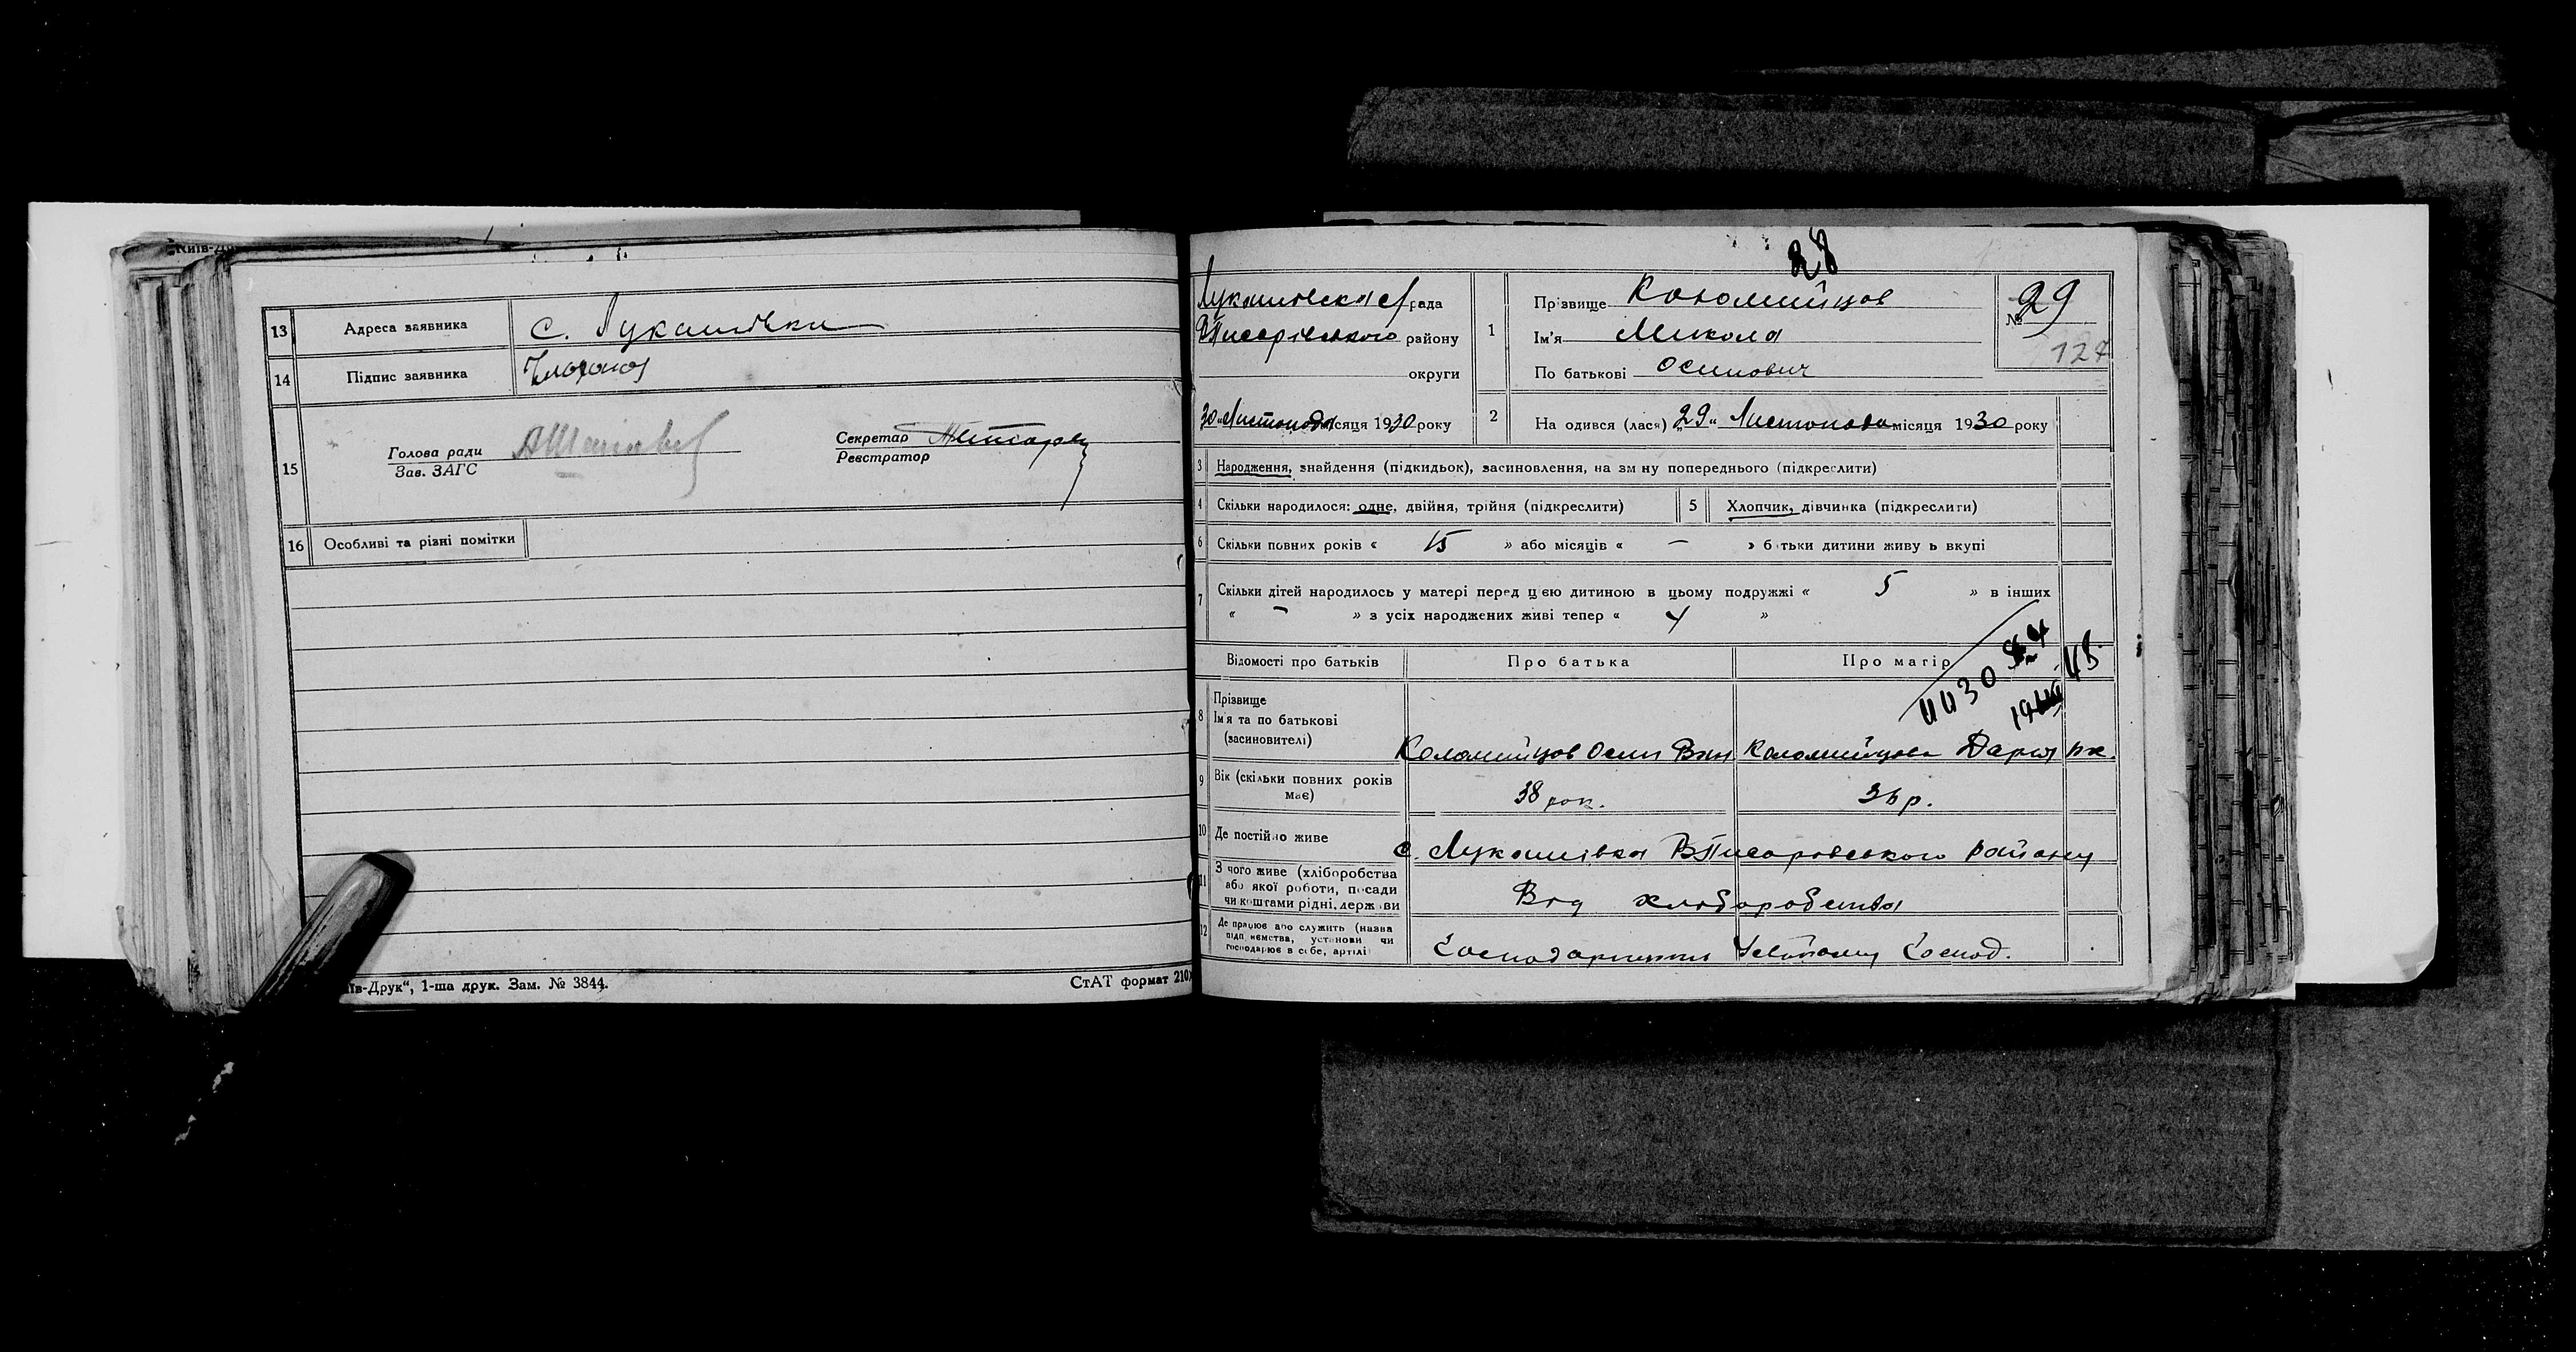 Київ-Др
13 Адреса заявника с. Лукашівка
14 Підпис заявника
15 Голова ради
Зав. ЗАГС
Секретар
Реєстратор
16 Особливі та різні помітки
їв-Друк“, 1-ша друк. Зам. № 3844.
СтАТ формат 210
28
Лукашовская с/рада
ВПисарівського району
округи
30 „Листопада місяця 1930 року
1 Прізвище Коломийцов
Ім'я Микола
По батькові Осипович
№ 29
127
2 На одився (лася) „29“ Листопада місяця 1930 року
3 Народження, знайдення (підкидьок), засиновлення, на зм ну попереднього (підкреслити)
4 Скільки народилося: одне, двійня, трійня (підкреслити)
5 Хлопчик, дівчинка (підкреслити)
6 Скільки повних років « 15 » або місяців « – » б тьки дитини живу ь вкупі
7 Скільки дітей народилось у матері перед цією дитиною в цьому подружжі « 5 » в інших
« – » з усіх народжених живі тепер « 4 »
Відомості про батьків Про батька Про матір
8 Прізвище
Ім'я та по батькові
(засиновителі)
Коломийцов Осип Коломийцова Дария
9 Вік (скільки повних років
має)
38 рок. 36 р.
10 Де постійно живе с. Лукашівка ВПисаровського району
11 З чого живе (хліборобства
або якої роботи, посади
чи коштами рідні, держ ви
Від хліборобства
12 Де працює або служить (назва
підп иємства, установи чи
господарює в себе, артілі
Господ.